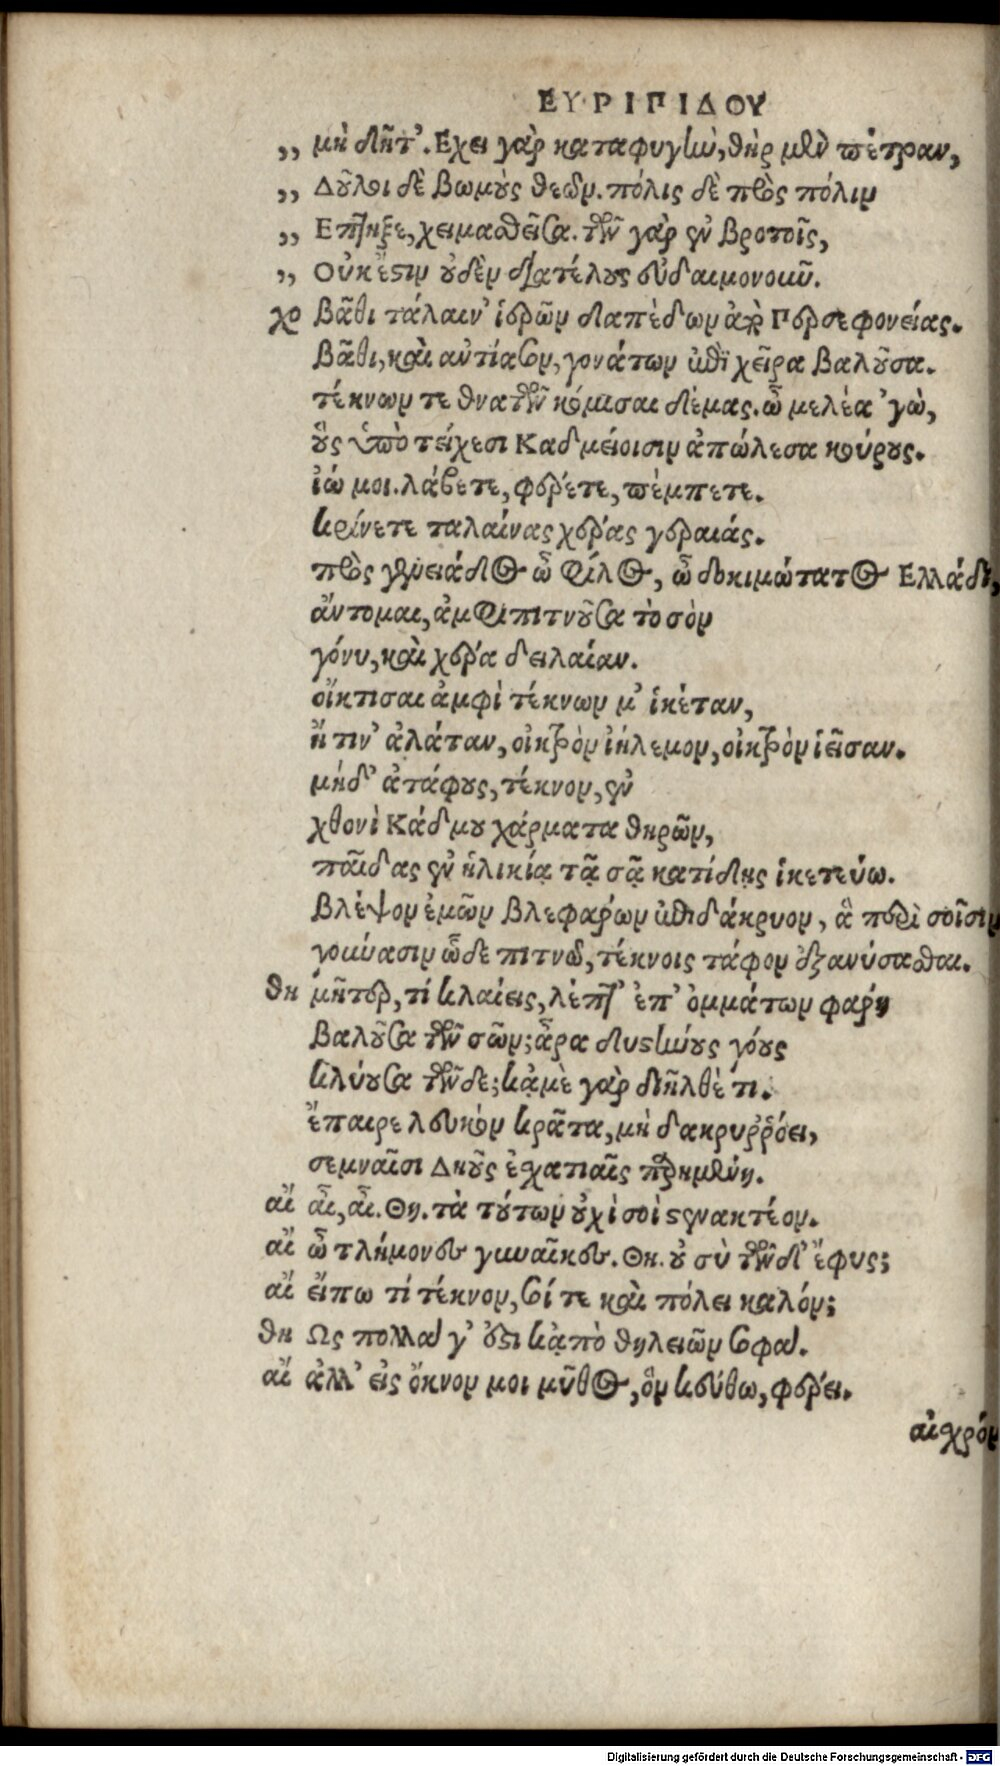 ΕΥΡΙΠΙΔΟΥ
,, μὴ δῆτ'. Εχει γὰρ καταφυγὴν, θὴρ μὲν πέτραν,
,, Δοῦλοι δὲ βωμοὺς θεῶν. πόλις δὲ πρὸς πόλιν
,, Επτηξε, χειμασθεῖσα. τῶν γὰρ ἐν βροτοῖς,
,, Οὐκ ἔστιν οὐδὲν διατέλους εὐδαιμονοῦν.
χο βᾶθι τάλαιν' ἱερῶν δαπέδων ἀπὸ Περσεφονείας.
βᾶθι, καὶ ἀντίασον, γονάτων ἐπὶ χεῖρα βαλοῦσα.
τέκνων τε θνατῶν κόμισαι δέμας. ὦ μελέα 'γὼ,
οὓς ὑπὸ τείχεσι Καδμείοισιν ἀπώλεσα κούρους.
ἰώ μοι. λάβετε, φέρετε, πέμπετε.
κρίνετε ταλαίνας χέρας γεραιάς.
πρὸς γενειάδος ὦ φίλος, ὦ δοκιμώτατος Ελλάδι,
ἄντομαι, ἀμφιπιτνοῦσα το σὸν
γόνυ, καὶ χέρα δειλαίαν.
οἴκτισαι ἀμφὶ τέκνων μ' ἱκέταν,
ἤ τιν' ἀλάταν, οἰκτρὸν ἰήλεμον, οἰκτρὸν ἱεῖσαν.
μήδ' ἀτάφους, τέκνον, ἐν
χθονὶ Κάδμου χάρματα θηρῶν,
παῖδας ἐν ἡλικίᾳ τᾷ σᾷ κατίδῃς ἱκετεύω.
βλέψον ἐμῶν βλεφάρων ἐπὶ δάκρυον, ἃ περὶ σοῖσιν
γούνασιν ὧδε πιτνῶ, τέκνοις τάφον ἐξανύσασθαι.
θη μῆτερ, τί κλαίεις, λέπτ' ἐπ' ὀμμάτων φάρη
βαλοῦσα τῶν σῶν; ἆρα δυστήνους γόους
κλύουσα τῶνδε; κᾀμὲ γὰρ διῆλθέ τι.
ἔπαιρε λευκὸν κρᾶτα, μὴ δακρυῤῥόει,
σεμναῖσι Δηοῦς ἐσχατιαῖς παρημένη.
αἴ αἶ, αἶ. Θη. τὰ τούτων οὐχὶ σοὶ στενακτέον.
αἴ ὦ τλήμονες γυναῖκες. Θη. οὐ σὺ τῶνδ' ἔφυς;
αἴ εἴπω τί τέκνον, σοί τε καὶ πόλει καλόν;
θη Ως πολλά γ' ἐστι κᾀπὸ θηλειῶν σοφά.
αἴ ἀλλ' εἰς ὄκνον μοι μῦθος, ὃν κεύθω, φέρει.
αἰσχρόν
Digitalisierung gefördert durch die Deutsche Forschungsgemeinschaft - DFG